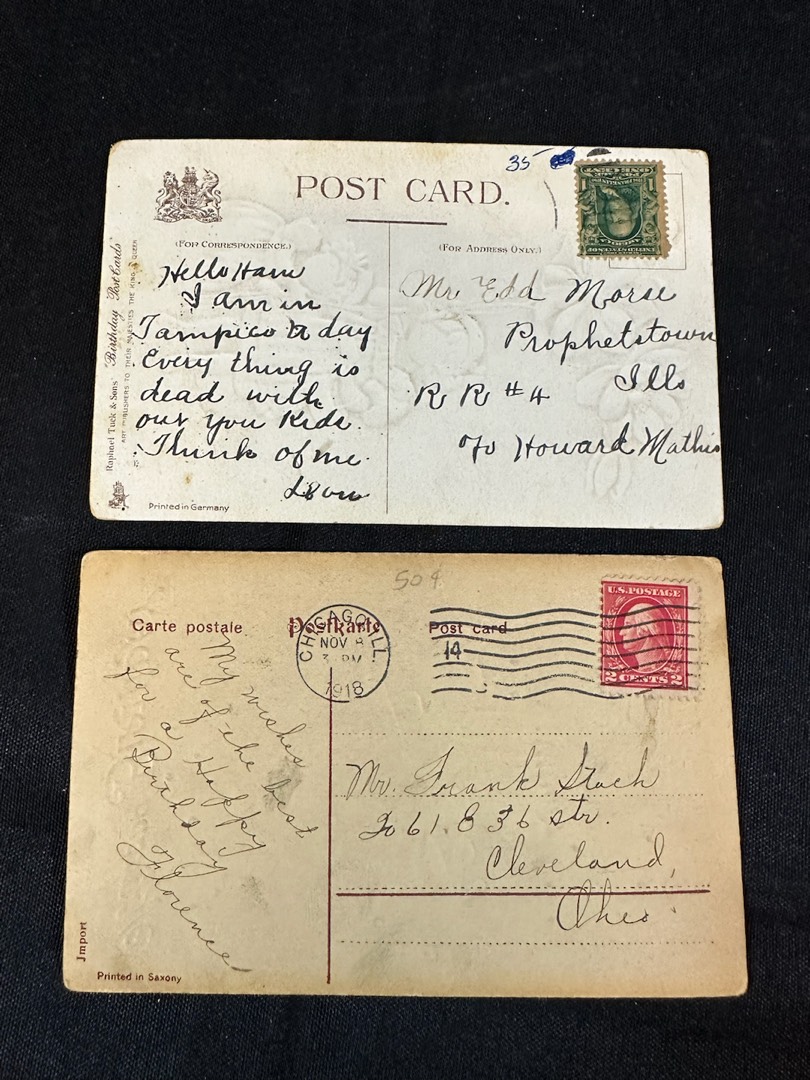 35
POST CARD.
(FOR CORRESPONDENCE.)
(FOR ADDRESS ONLY.)
Hello Ham
I am in
Tampico to day
Every thing is
dead with
out you Kids.
Think of me.
Leon
Mr Edd Morse
Prophetstown
Ills
R R #4
To Howard Mathis
Raphael Tuck & Sons' "Birthday" Post Cards
ART PUBLISHERS TO THEIR MAJESTIES THE KING & QUEEN
Printed in Germany
1
1
50¢
Carte postale
Postkarte
Post card
CHICAGO, ILL.
NOV 8
3 PM
1918
14
U.S. POSTAGE
2 CENTS 2
My wishes
are of the best
for a Happy
Birthday
Florence
Mr. Frank Stach
2061. E 36 str.
Cleveland,
Ohio
Import
Printed in Saxony